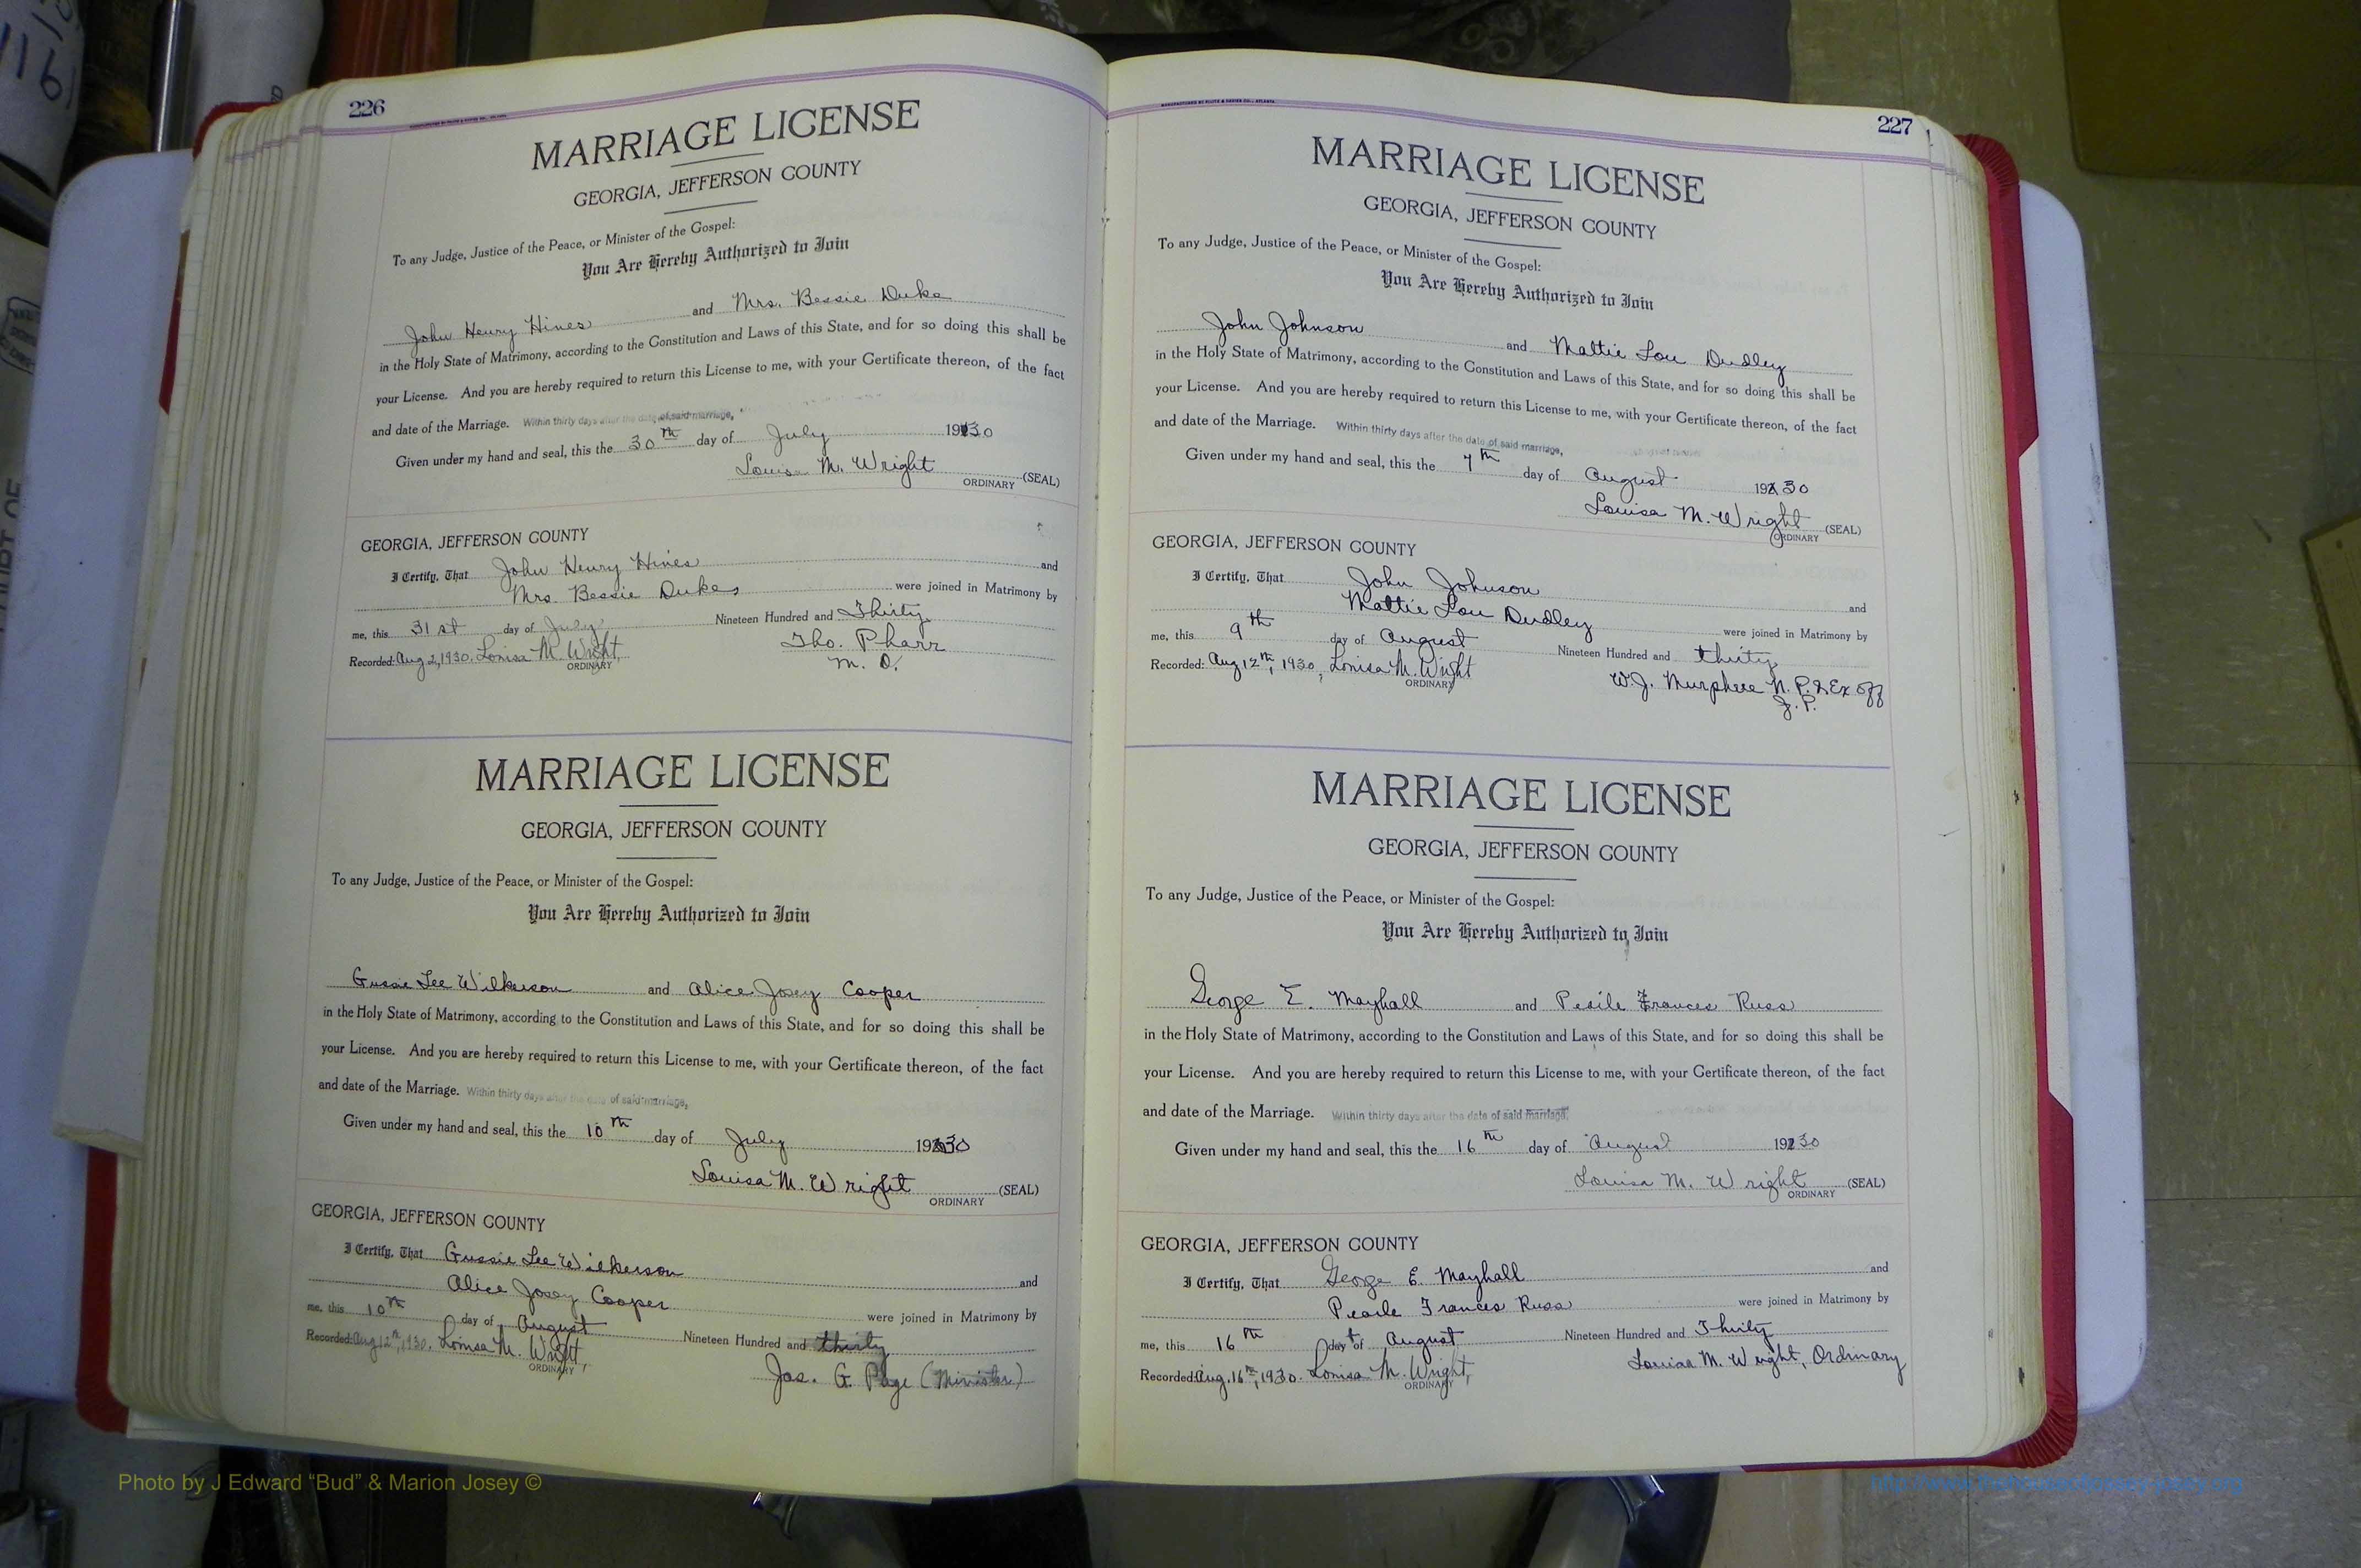 226
MARRIAGE LICENSE
GEORGIA, JEFFERSON COUNTY
To any Judge, Justice of the Peace, or Minister of the Gospel:
You Are Hereby Authorized to Join
John Henry Hines and Mrs. Bessie Duke
in the Holy State of Matrimony, according to the Constitution and Laws of this State, and for so doing this shall be
your License. And you are hereby required to return this License to me, with your Certificate thereon, of the fact
and date of the Marriage. Within thirty days after the date of said marriage,
Given under my hand and seal, this the 30th day of July 1930
Louisa M. Wright (SEAL)
ORDINARY
GEORGIA, JEFFERSON COUNTY
I Certify, That John Henry Hines and
Mrs. Bessie Dukes were joined in Matrimony by
me, this 31st day of July Nineteen Hundred and Thirty
Recorded: Aug 2, 1930. Louisa M. Wright, Tho. Pharr
ORDINARY M. D.
MARRIAGE LICENSE
GEORGIA, JEFFERSON COUNTY
To any Judge, Justice of the Peace, or Minister of the Gospel:
You Are Hereby Authorized to Join
Gussie Lee Wilkerson and Alice Josey Cooper
in the Holy State of Matrimony, according to the Constitution and Laws of this State, and for so doing this shall be
your License. And you are hereby required to return this License to me, with your Certificate thereon, of the fact
and date of the Marriage. Within thirty days after the date of said marriage,
Given under my hand and seal, this the 10th day of July 1930
Louisa M. Wright (SEAL)
ORDINARY
GEORGIA, JEFFERSON COUNTY
I Certify, That Gussie Lee Wilkerson and
Alice Josey Cooper were joined in Matrimony by
me, this 10th day of August Nineteen Hundred and thirty
Recorded: Aug 12th, 1930. Louisa M. Wright,
ORDINARY Jas. G. Page (Minister)
227
MARRIAGE LICENSE
GEORGIA, JEFFERSON COUNTY
To any Judge, Justice of the Peace, or Minister of the Gospel:
You Are Hereby Authorized to Join
John Johnson and Mattie Lou Dudley
in the Holy State of Matrimony, according to the Constitution and Laws of this State, and for so doing this shall be
your License. And you are hereby required to return this License to me, with your Certificate thereon, of the fact
and date of the Marriage. Within thirty days after the date of said marriage,
Given under my hand and seal, this the 7th day of August 1930
Louisa M. Wright (SEAL)
ORDINARY
GEORGIA, JEFFERSON COUNTY
I Certify, That John Johnson and
Mattie Lou Dudley were joined in Matrimony by
me, this 9th day of August Nineteen Hundred and thirty
Recorded: Aug 12th, 1930, Louisa M. Wright W. J. Murphree N. P. & Ex off
ORDINARY J. P.
MARRIAGE LICENSE
GEORGIA, JEFFERSON COUNTY
To any Judge, Justice of the Peace, or Minister of the Gospel:
You Are Hereby Authorized to Join
George E. Mayhall and Frances Russ
in the Holy State of Matrimony, according to the Constitution and Laws of this State, and for so doing this shall be
your License. And you are hereby required to return this License to me, with your Certificate thereon, of the fact
and date of the Marriage. Within thirty days after the date of said marriage,
Given under my hand and seal, this the 16th day of August 1930
Louisa M. Wright (SEAL)
ORDINARY
GEORGIA, JEFFERSON COUNTY
I Certify, That George E. Mayhall and
Pearle Frances Russ were joined in Matrimony by
me, this 16th day of August Nineteen Hundred and Thirty
Recorded: Aug. 16th, 1930. Louisa M. Wright, Louisa M. Wright, Ordinary
ORDINARY
Photo by J Edward “Bud” & Marion Josey ©